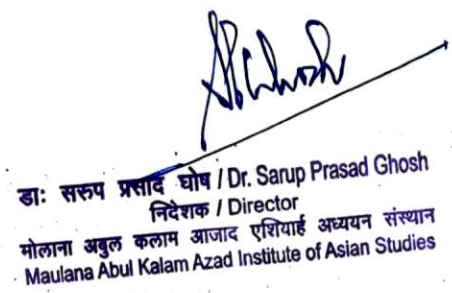 डाः सरुप प्रसाद घोष / Dr. Sarup Prasad Ghosh
निदेशक / Director
मोलाना अबुल कलाम आजाद एशियाई अध्ययन संस्थान
Maulana Abul Kalam Azad Institute of Asian Studies